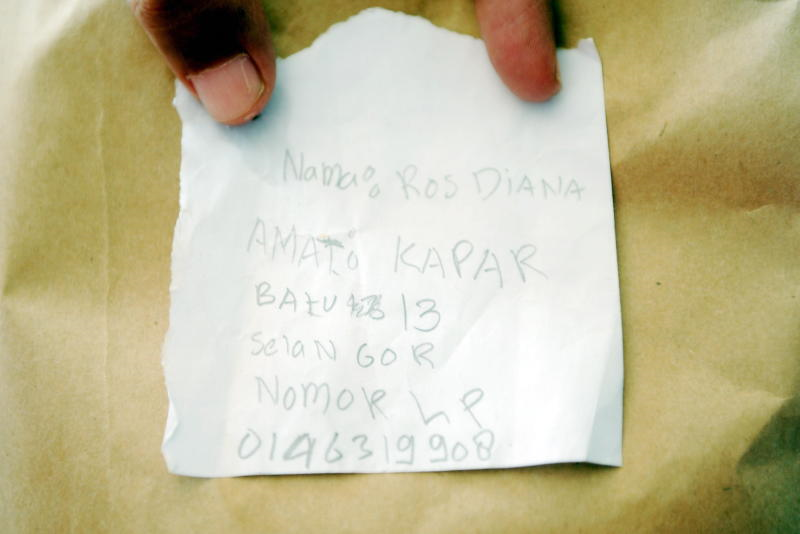 Nama: ROS DiANA
AMAT: KAPAR
BATU 13
SelaN GOR
NOMOR HP
0146319908